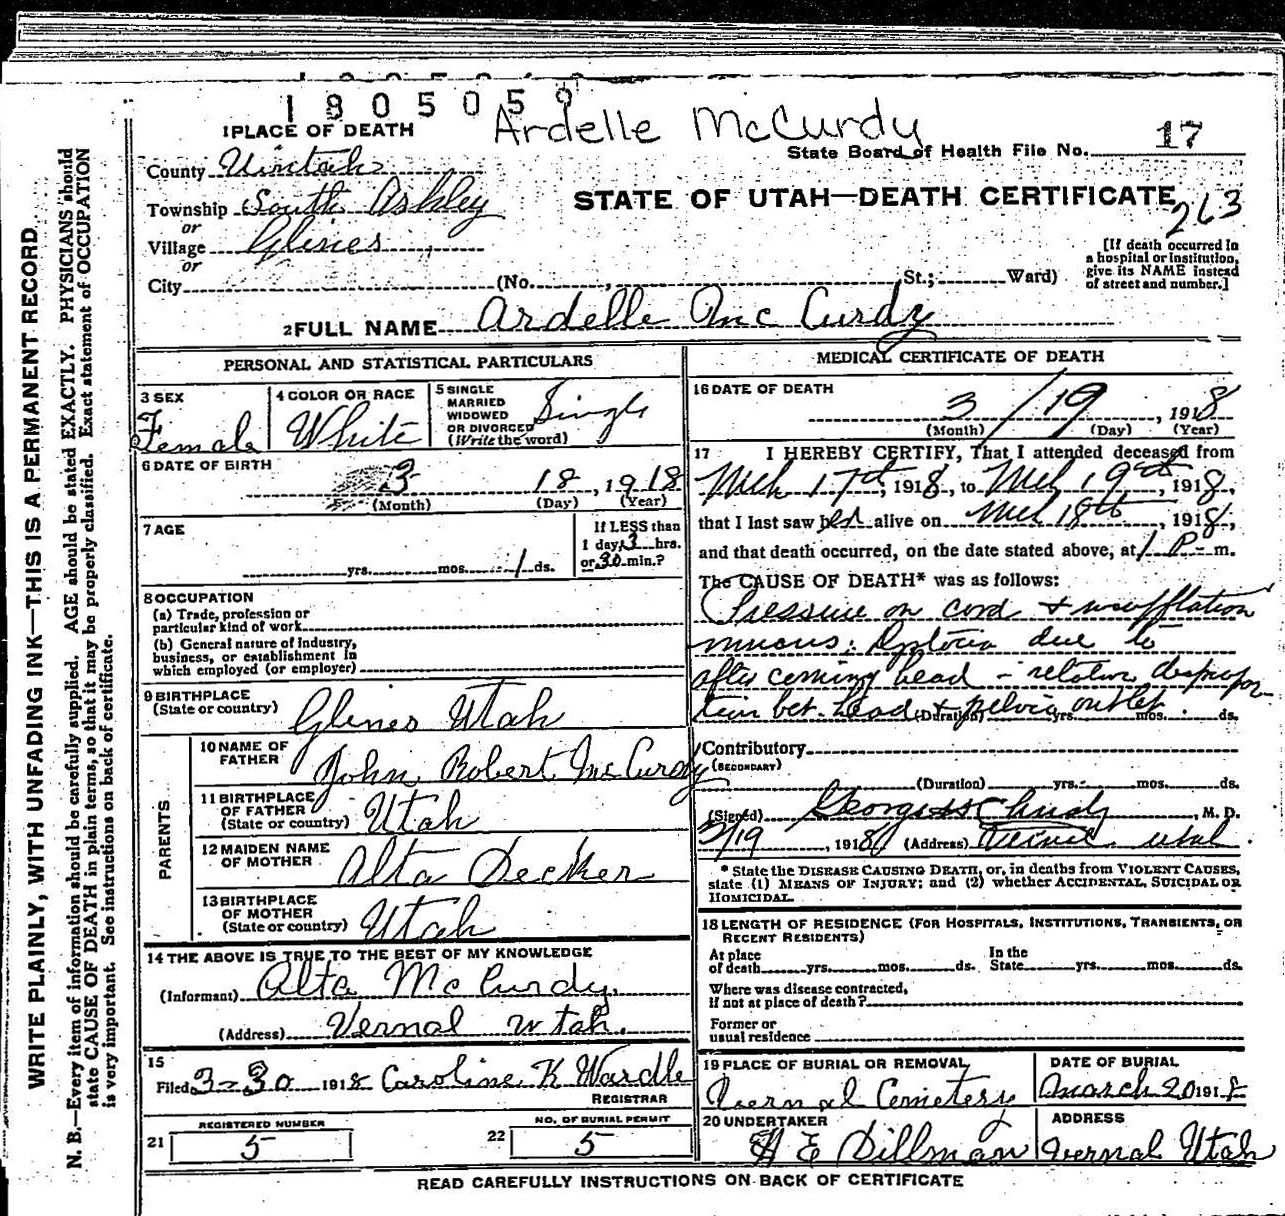 1805059
Ardelle McCurdy
1 PLACE OF DEATH
State Board of Health File No. 17
County Uintah
Township South Ashley
or
Village Glines
or
City (No. , St.; Ward)
STATE OF UTAH—DEATH CERTIFICATE
263
[If death occurred in
a hospital or institution,
give its NAME instead
of street and number.]
2 FULL NAME Ardelle Mc Curdy
PERSONAL AND STATISTICAL PARTICULARS
3 SEX
Female
4 COLOR OR RACE
White
5 SINGLE
MARRIED
WIDOWED
OR DIVORCED
(Write the word)
Single
6 DATE OF BIRTH
3 18, 1918
(Month) (Day) (Year)
7 AGE
yrs. mos. 1 ds.
If LESS than
1 day, 3 hrs.
or 30 min.?
8 OCCUPATION
(a) Trade, profession or
particular kind of work
(b) General nature of industry,
business, or establishment in
which employed (or employer)
9 BIRTHPLACE
(State or country) Glines Utah
PARENTS
10 NAME OF
FATHER John Robert McCurdy
11 BIRTHPLACE
OF FATHER
(State or country) Utah
12 MAIDEN NAME
OF MOTHER Alta Decker
13 BIRTHPLACE
OF MOTHER
(State or country) Utah
14 THE ABOVE IS TRUE TO THE BEST OF MY KNOWLEDGE
(Informant) Alta McCurdy.
(Address) Vernal Utah.
15
Filed 3-30 1918 Caroline K Wardle
REGISTRAR
21 REGISTERED NUMBER
5
22 NO. OF BURIAL PERMIT
5
MEDICAL CERTIFICATE OF DEATH
16 DATE OF DEATH
3/19, 1918
(Month) (Day) (Year)
17 I HEREBY CERTIFY, That I attended deceased from
Mch 17th, 1918, to Mch 19th, 1918,
that I last saw her alive on Mch 18th, 1918,
and that death occurred, on the date stated above, at 1 P. m.
The CAUSE OF DEATH* was as follows:
Pressure on cord + insufflation
mucus: Dystocia due to
after coming head - relative dispropor
tion bet. head + pelvic outlet.
(Duration) yrs. mos. ds.
Contributory
(SECONDARY)
(Duration) yrs. mos. ds.
(Signed) , M. D.
3/19, 1918 (Address) Vernal Utah.
* State the DISEASE CAUSING DEATH, or, in deaths from VIOLENT CAUSES,
state (1) MEANS OF INJURY; and (2) whether ACCIDENTAL, SUICIDAL OR
HOMICIDAL.
18 LENGTH OF RESIDENCE (FOR HOSPITALS, INSTITUTIONS, TRANSIENTS, OR
RECENT RESIDENTS)
At place
of death yrs. mos. ds.
In the
State yrs. mos. ds.
Where was disease contracted,
if not at place of death?
Former or
usual residence
19 PLACE OF BURIAL OR REMOVAL
Vernal Cemetery
DATE OF BURIAL
March 20 1918
20 UNDERTAKER
Dillman
ADDRESS
Vernal Utah
READ CAREFULLY INSTRUCTIONS ON BACK OF CERTIFICATE
WRITE PLAINLY, WITH UNFADING INK—THIS IS A PERMANENT RECORD.
N. B.—Every item of information should be carefully supplied. AGE should be stated EXACTLY. PHYSICIANS should
state CAUSE OF DEATH in plain terms, so that it may be properly classified. Exact statement of OCCUPATION
is very important. See instructions on back of certificate.